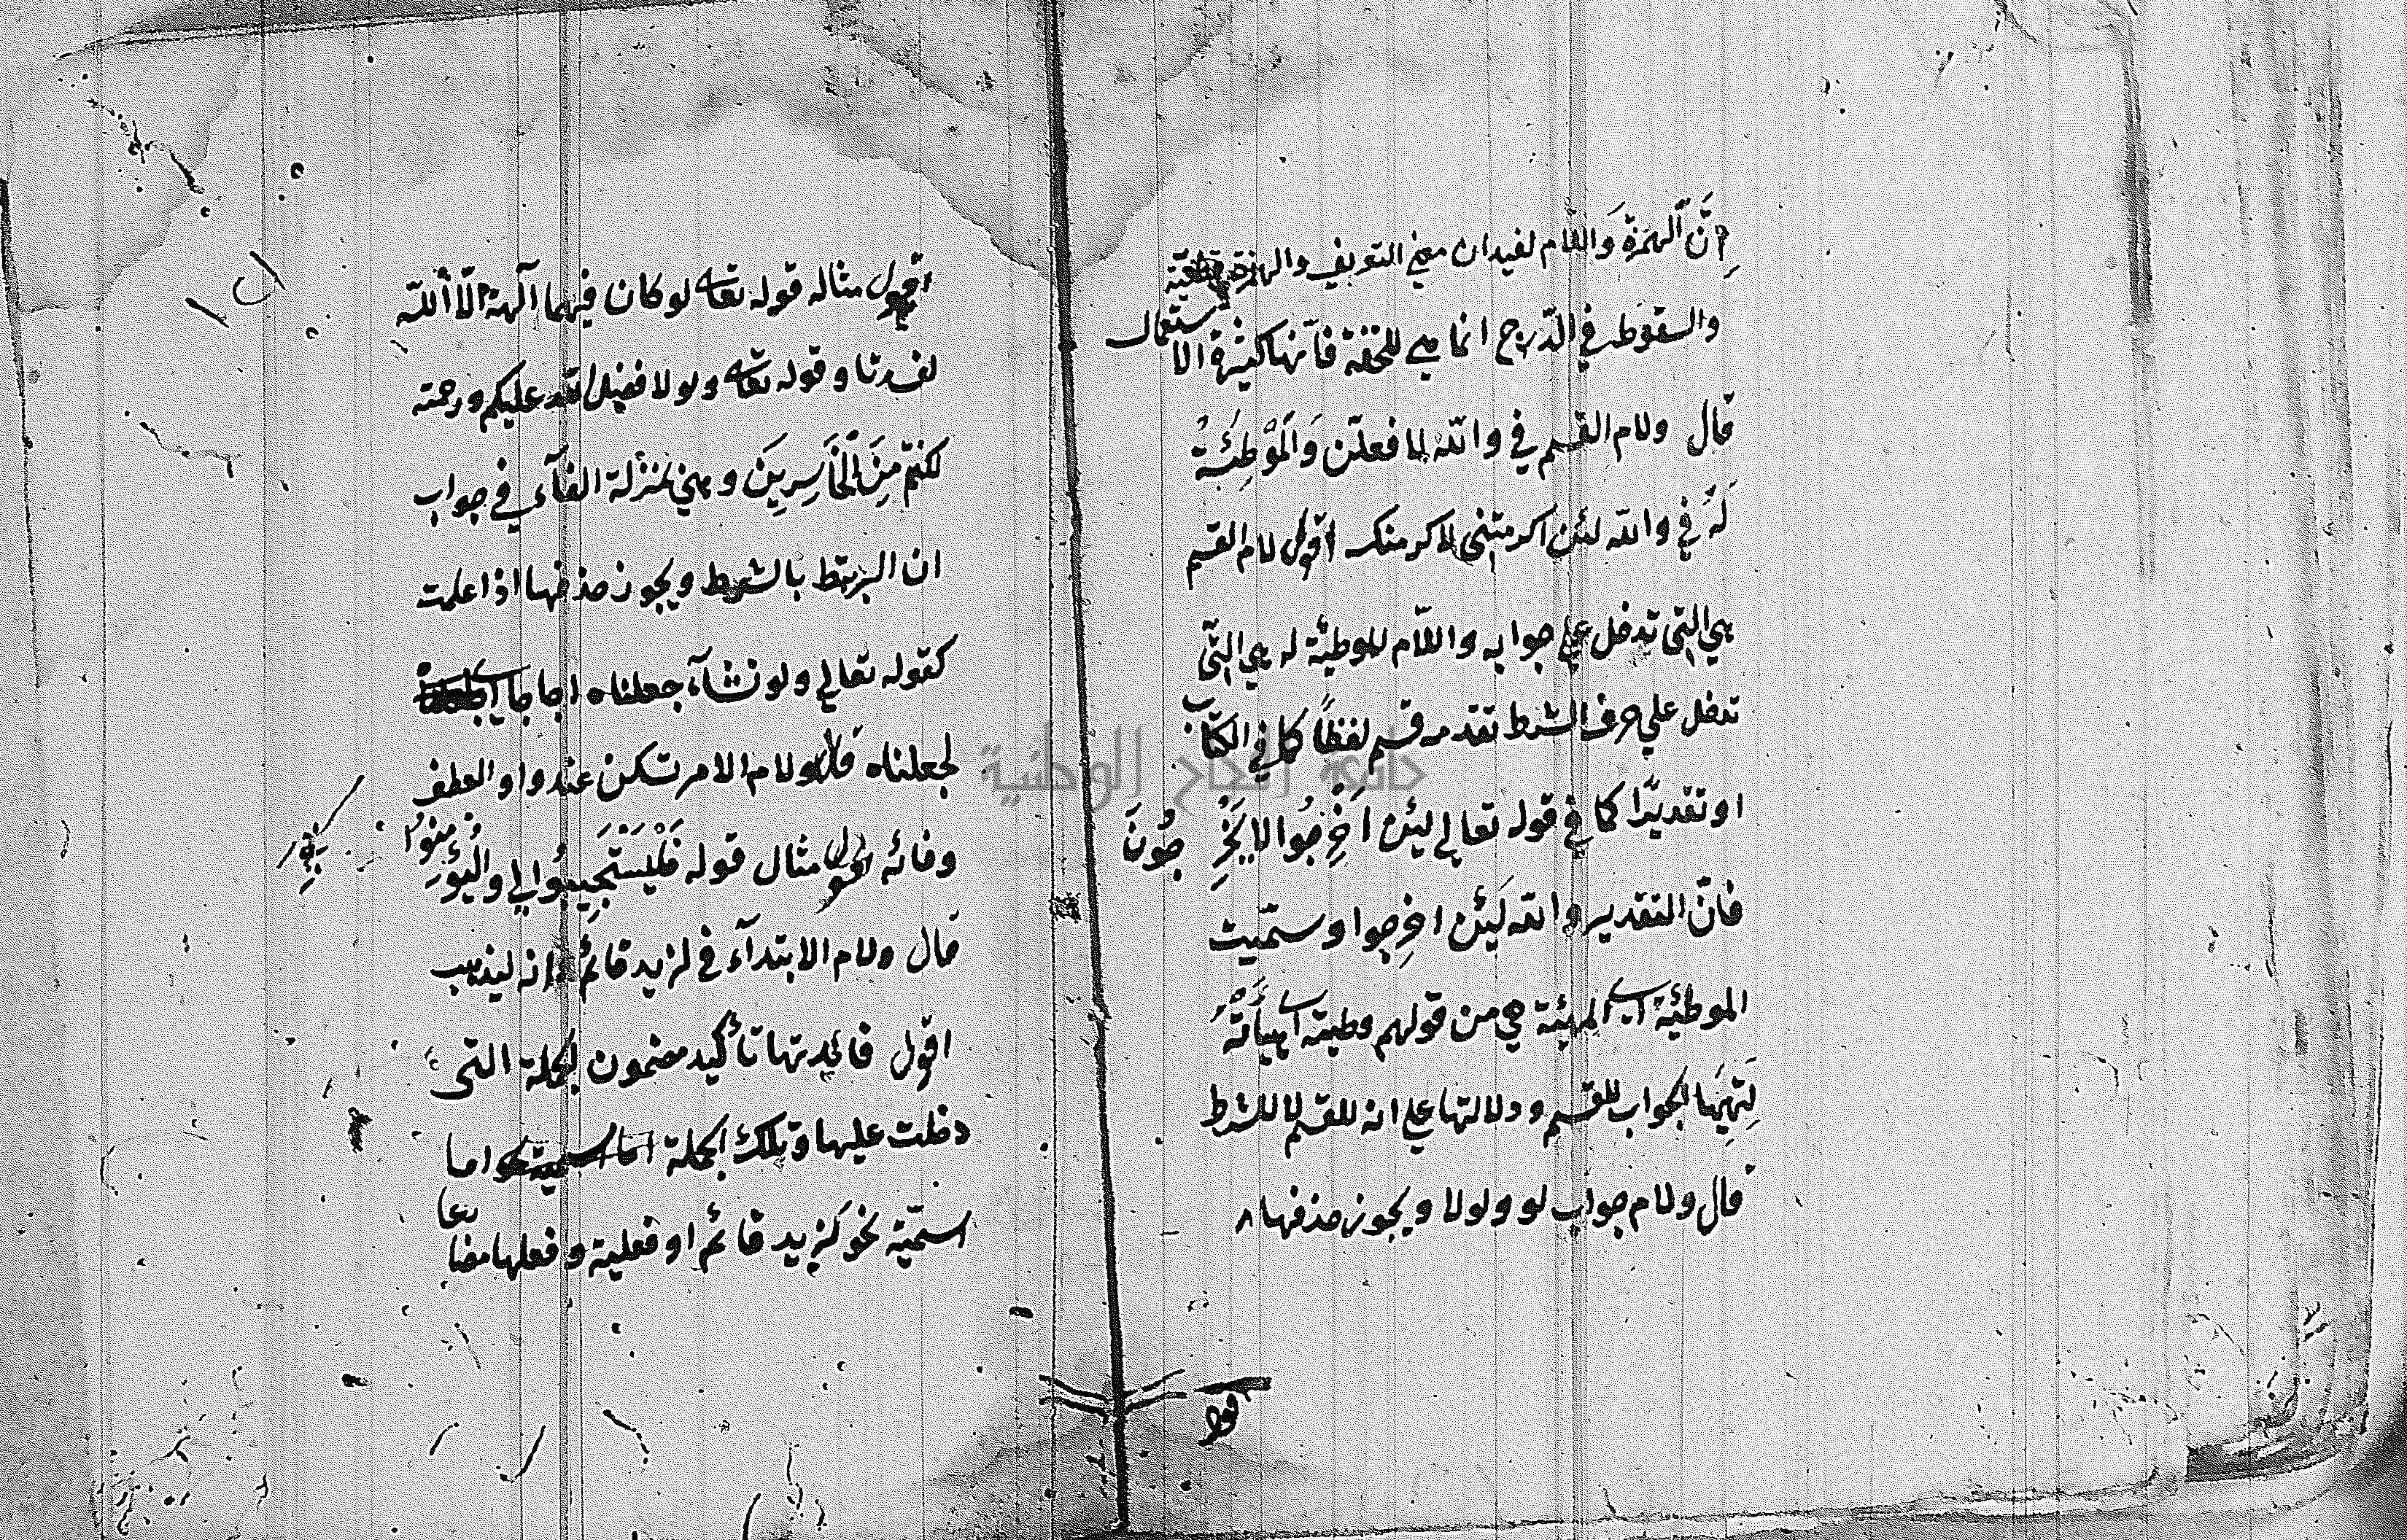 اِنَّ الهمزة وَاللّام لفيدان معنى التعريف والهمزة قطعيّة
والسقوط في الدّرج انما هي للخفّة فانّها كثيرة الاستعمال
قال ولام القسم في والله لما فعلن وَالمُوْطِئَة
لَهُ في والله لئن اكرمتني لاكرمنك اقول لام القسم
هي التي تدخل علي جوابه واللّام للوطيّة له هي التّى
تدخل علي حرف الشرط تقدمه قسم لفظًا كما في الكتاب
او تقديرًا كما في قوله تعالي لئن اُخْرِجُوا لا يَخْرُجُونَ
فانّ التقدير والله لَئِن اخرِجوا وسمّيت
الموطئة اي المهيّئة هي من قولهم وطيته اي هيأتُه
لِتهيهَا الجواب للقسم ودلالتها علي انه للقسم لا للشرط
قال ولام جواب لو ولولا ويجوز حذفها
اقول
اقول مثاله قوله تعالى لو كان فيهما آلهة الّا الله
لفسدتا وقوله تعالى ولولا فضل الله عليكم ورحمته
لكنتم مِنَ الْخَاسِرِيَنَ وهي بمنزلة الفآء في جواب
ان اليربتط بالشرط ويجوز حذفها اذا علمت
كقوله تعالي ولو نشآء جعلناه اجاجا اي
لجعلناه قال ولام الامر تسكن عند واو العطف
وفائه اقول مثال قوله فَلْيَسْتَجِيبُوا لي وَالْيُؤْمِنُوا
قال ولام الابتدآء في لزيد قائم وانه ليذهب
اقول فائدتها تأكيد مضمون الجملة التى
دخلت عليها وتلك الجملة اما اسمية نحو اما
اسميّة نحو لزيد قائم او فعلية وفعلها مضارعا
جامعة النجاح الوطنية